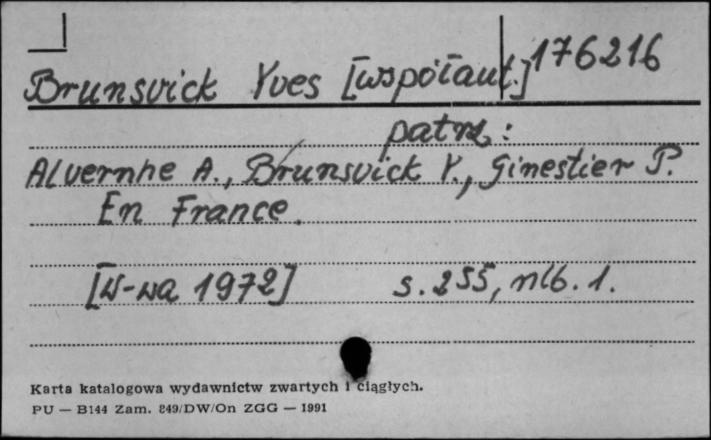 Brunsvick Yves [współaut.] 176216
patrz:
Alvernhe A., Brunsvick Y., Ginestier P.
En France.
[W-wa 1972] s. 255, nlb. 1.
Karta katalogowa wydawnictw zwartych i ciągłych.
PU — B144 Zam. 849/DW/On ZGG — 1991